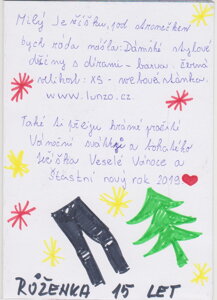 Milý Ježíšku, pod stromečkem
bych ráda našla: Dámské stylové
džíny s dírami - barva: černá
velikost: XS - webová stránka:
www.lunzo.cz.
Také ti přeji krásné prožití
Vánoční svátků a bohatého
Ježíška Veselé Vánoce a
Šťastný nový rok 2019
RŮŽENKA 15 LET